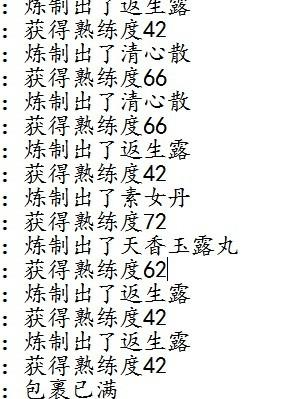 ：炼制出了返生露
：获得熟练度42
：炼制出了清心散
：获得熟练度66
：炼制出了清心散
：获得熟练度66
：炼制出了返生露
：获得熟练度42
：炼制出了素女丹
：获得熟练度72
：炼制出了天香玉露丸
：获得熟练度62
：炼制出了返生露
：获得熟练度42
：炼制出了返生露
：获得熟练度42
：包裹已满